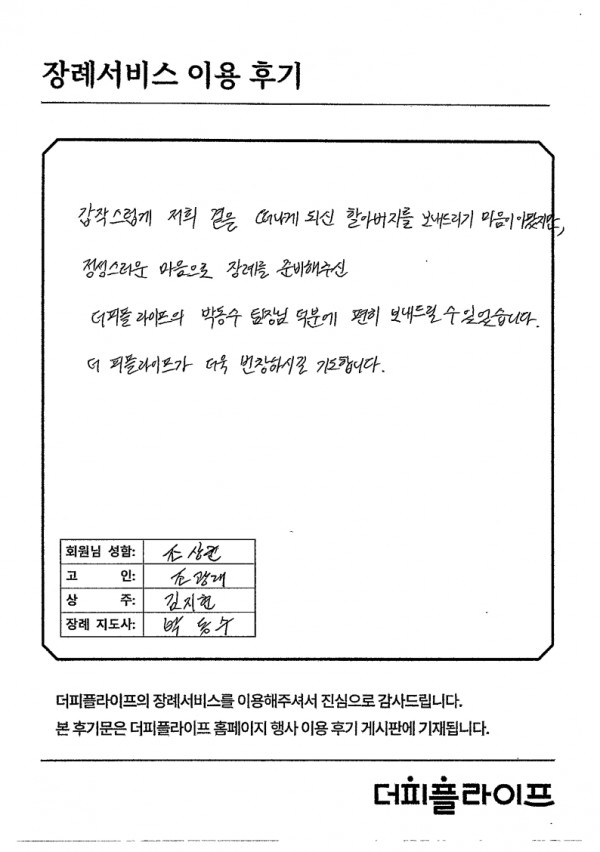 장례서비스 이용 후기
갑작스럽게 저희 곁은 떠나게 되신 할아버지를 보내드리기 마음이 아팠지만,
정성스러운 마음으로 장례를 준비해주신
더피플라이프의 박동수 팀장님 덕분에 편히 보내드릴 수 있었습니다.
더 피플라이프가 더욱 번창하시길 기도합니다.
회원님 성함: 조상권
고 인: 조광래
상 주: 김지현
장례 지도사: 박동수
더피플라이프의 장례서비스를 이용해주셔서 진심으로 감사드립니다.
본 후기문은 더피플라이프 홈페이지 행사 이용 후기 게시판에 기재됩니다.
더피플라이프